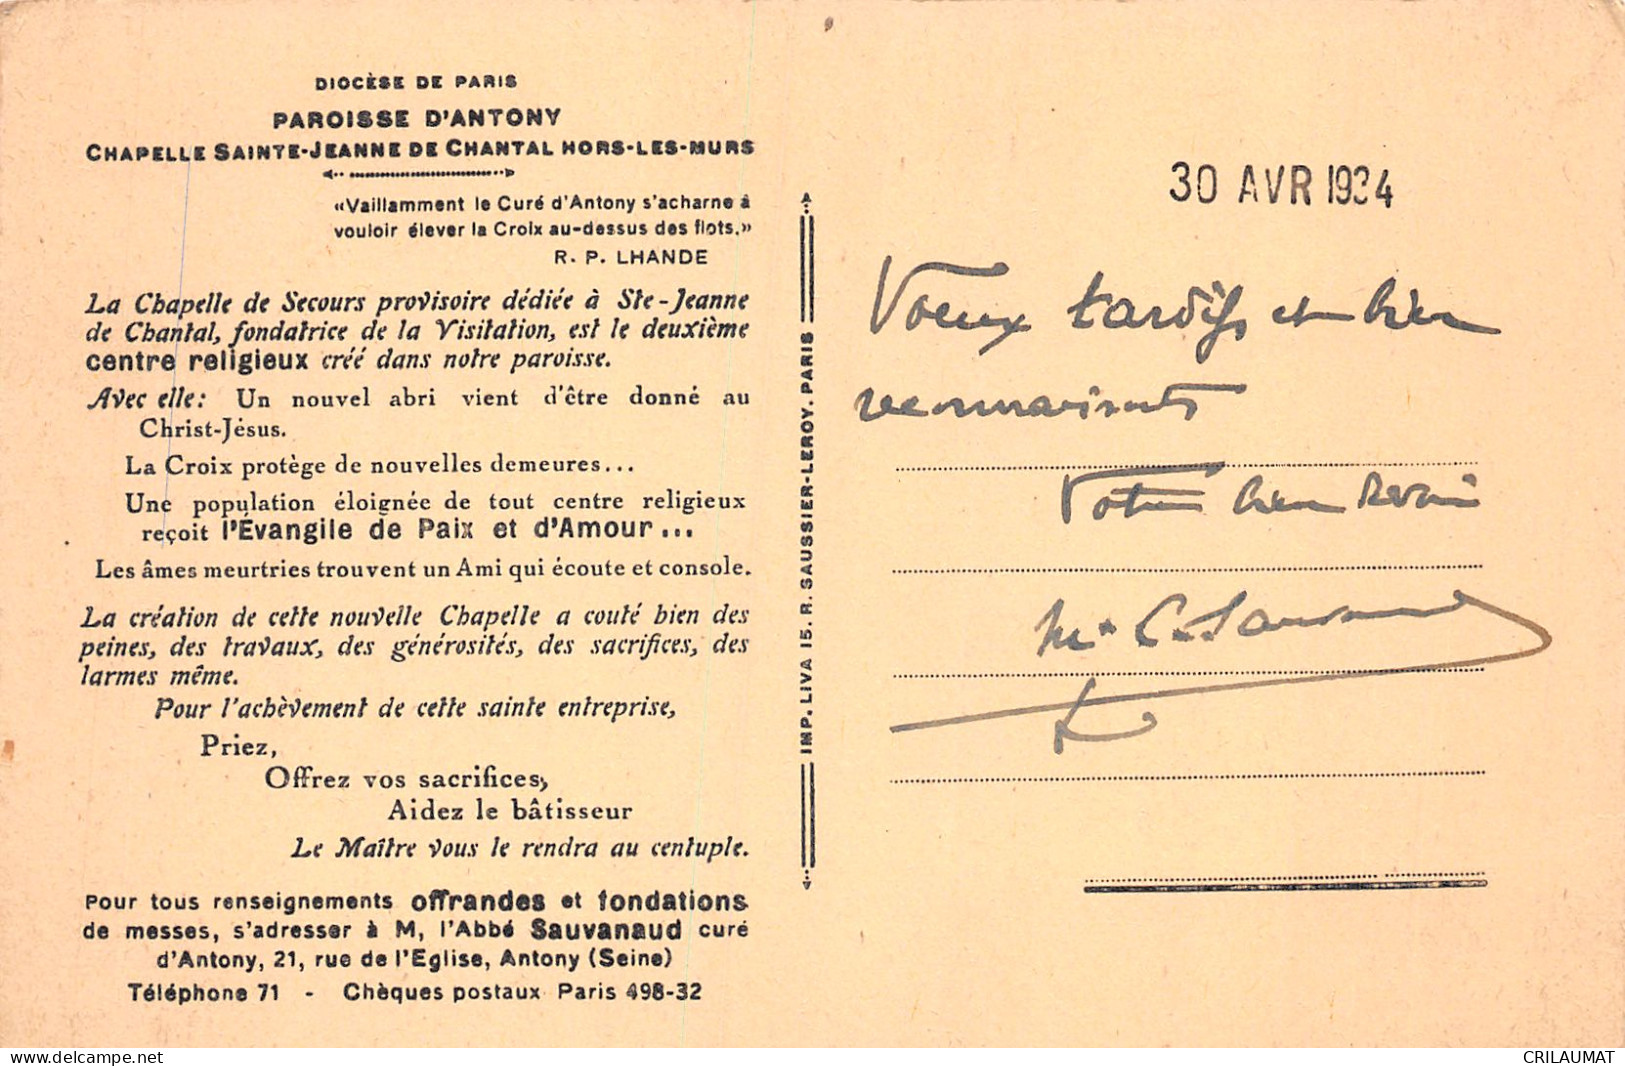 DIOCÈSE DE PARIS
PAROISSE D'ANTONY
CHAPELLE SAINTE-JEANNE DE CHANTAL HORS-LES-MURS
«Vaillamment le Curé d'Antony s'acharne à
vouloir élever la Croix au-dessus des flots.»
R. P. LHANDE
La Chapelle de Secours provisoire dédiée à Ste-Jeanne
de Chantal, fondatrice de la Visitation, est le deuxième
centre religieux créé dans notre paroisse.
Avec elle: Un nouvel abri vient d'être donné au
Christ-Jésus.
La Croix protège de nouvelles demeures...
Une population éloignée de tout centre religieux
reçoit l'Evangile de Paix et d'Amour...
Les âmes meurtries trouvent un Ami qui écoute et console.
La création de cette nouvelle Chapelle a couté bien des
peines, des travaux, des générosités, des sacrifices, des
larmes même.
Pour l'achèvement de cette sainte entreprise,
Priez,
Offrez vos sacrifices,
Aidez le bâtisseur
Le Maître vous le rendra au centuple.
Pour tous renseignements offrandes et fondations
de messes, s'adresser à M, l'Abbé Sauvanaud curé
d'Antony, 21, rue de l'Eglise, Antony (Seine)
Téléphone 71 - Chèques postaux Paris 498-32
IMP. LIVA 15. R. SAUSSIER-LEROY. PARIS
30 AVR 1934
Voeux tardifs et bien
reconnaissants
Votre bien dévoué
Sauvanaud
delcampe.net
CRILAUMAT